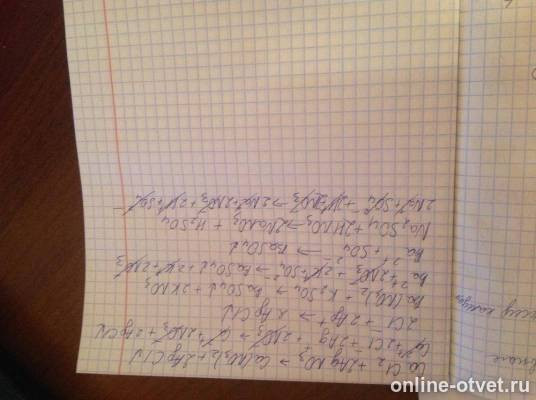 CaCl2 + 2AgNO3 → Ca(NO3)2 + 2AgCl↓
Ca2+ + 2Cl- + 2Ag+ + 2NO3- → Ca2+ + 2NO3- + 2AgCl↓
2Cl- + 2Ag+ → 2AgCl↓
Ba(NO3)2 + K2SO4 → BaSO4↓ + 2KNO3
Ba2+ + 2NO3- + 2K+ + SO4 2- → BaSO4↓ + 2K+ + 2NO3-
Ba2+ + SO4 2- → BaSO4↓
Na2SO4 + 2HNO3 → 2NaNO3 + H2SO4
2Na+ + SO4 2- + 2H+ + 2NO3- → 2Na+ + 2NO3- + 2H+ + SO4 2-
online-otvet.ru